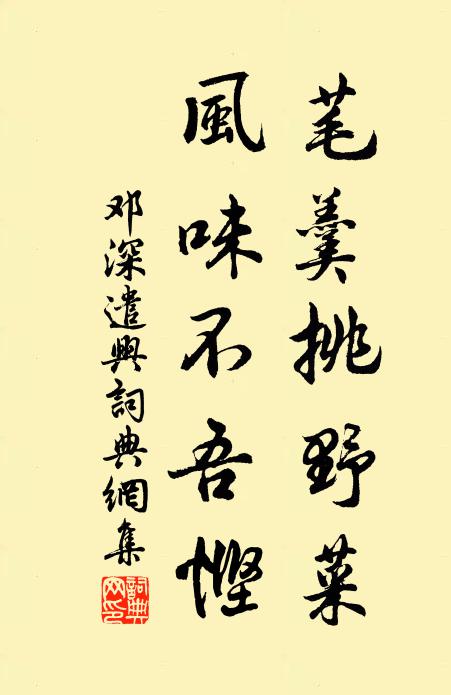 芼羹挑野菜
風味不吾慳
邓深遣興詞典網集
詞典網印